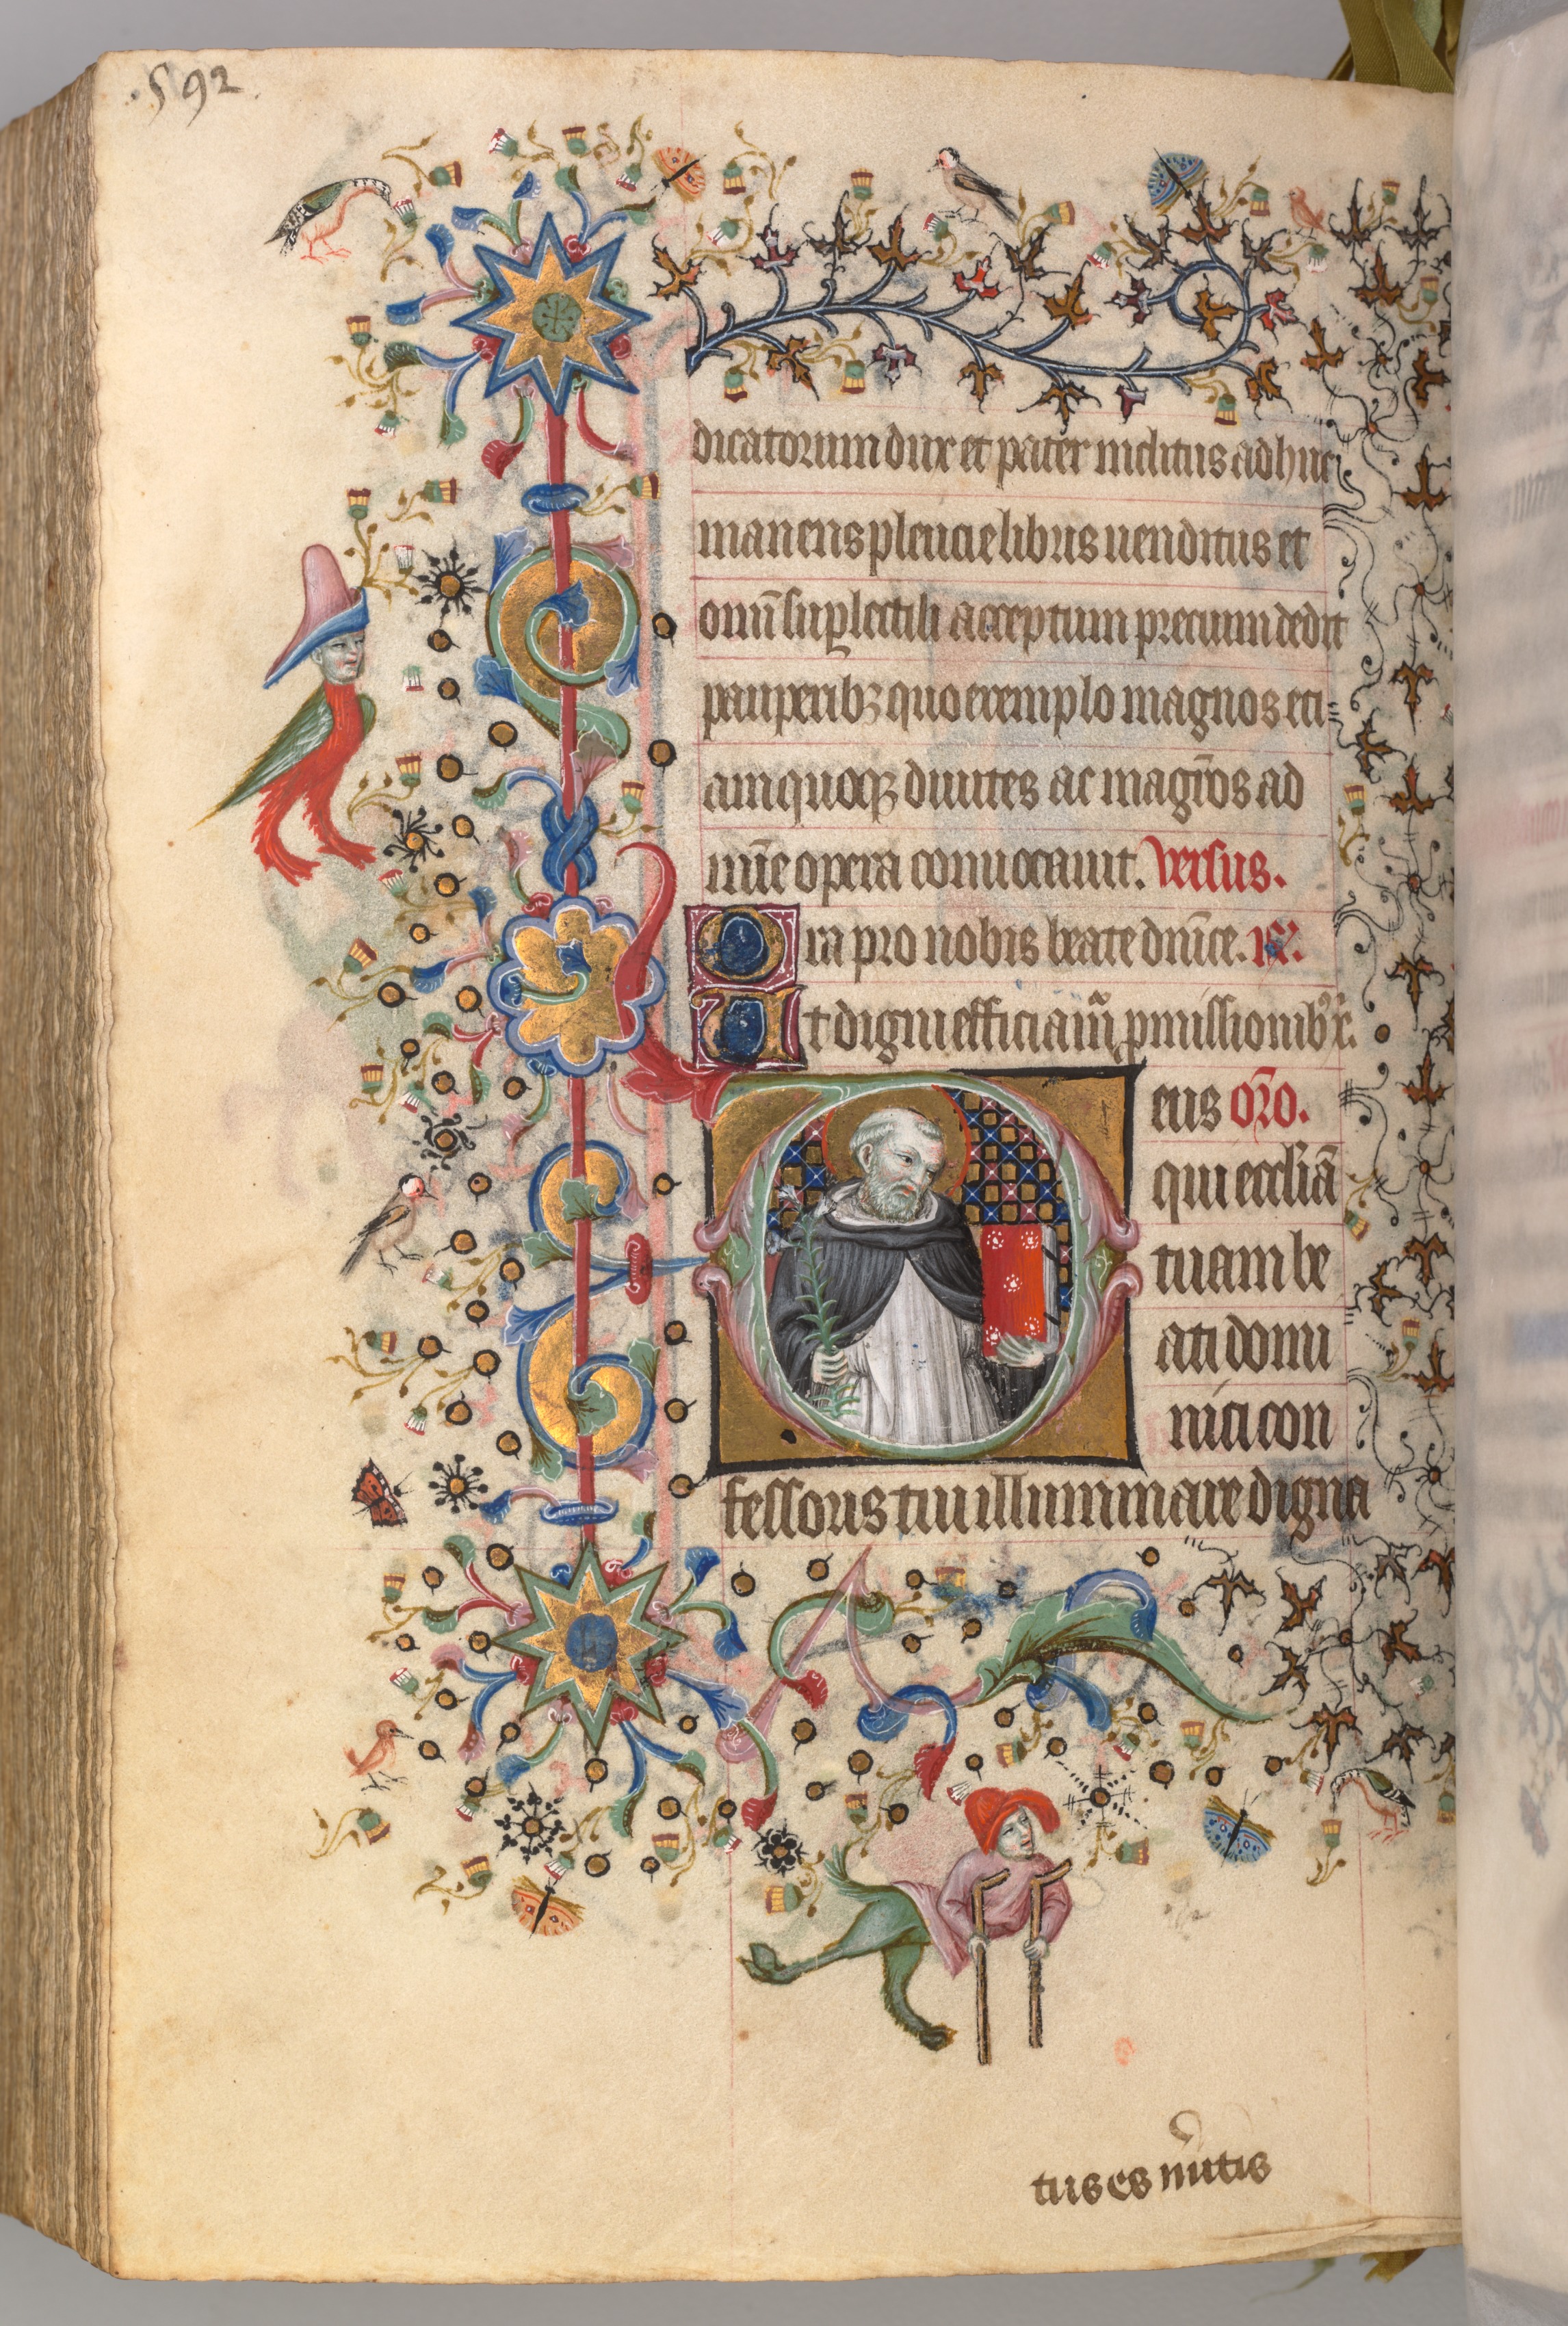 592
dicatorum dux et pater inclitus adhuc
manens plencie libris venditus et
omī sup̱lectili acceptum precium dedit
pauperibꝫ quo exemplo magnos eti-
am quoqꝫ divites ac magr̄os ad
mīe opera convocavit. Versus.
Ora pro nobis beate dnīce. R̃.
Ut digni efficiam̃ p̱missionibꝰ x̃.
Deus or̄o.
qui eccl̄iā
tuam be
ati domi
nici con
fessoris tui illuminare digna
tus es m̄itis